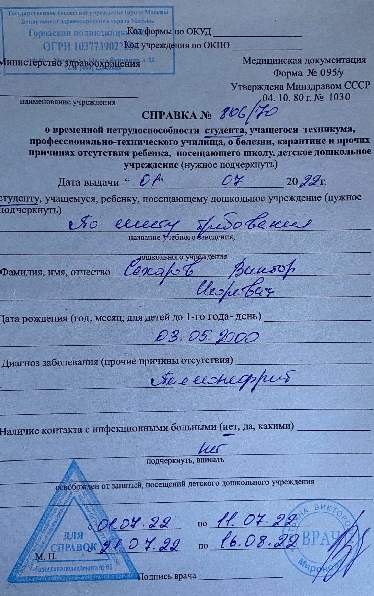 Государственное бюджетное учреждение города Москвы
Департамент здравоохранения города Москвы
Городская поликлиника
ОГРН 103773902
Код формы по ОКУД
Код учреждения по ОКПО
Министерство здравоохранения
Медицинская документация
Форма № 095/у
Утверждена Минздравом СССР
04. 10. 80 г. № 1030
наименование учреждения
СПРАВКА № 806/70
о временной нетрудоспособности студента, учащегося техникума,
профессионально-технического училища, о болезни, карантине и прочих
причинах отсутствия ребенка, посещающего школу, детское дошкольное
учреждение (нужное подчеркнуть)
Дата выдачи "01 07 2022г.
студенту, учащемуся, ребенку, посещающему дошкольное учреждение (нужное
подчеркнуть)
По месту требования
название учебного заведения,
дошкольного учреждения
Фамилия, имя, отчество Сахаров Виктор
Игоревич
Дата рождения (год, месяц, для детей до 1-го года- день)
03.05.2000
Диагноз заболевания (прочие причины отсутствия)
Пиелонефрит
Наличие контакта с инфекционными больными (нет, да, какими)
нет
подчеркнуть, вписать
освобожден от занятий, посещений детского дошкольного учреждения
с 01.07.22 по 11.07.22
21.07.22 по 16.08.22
ДЛЯ
СПРАВОК
ВРАЧ
М. П.
Подпись врача